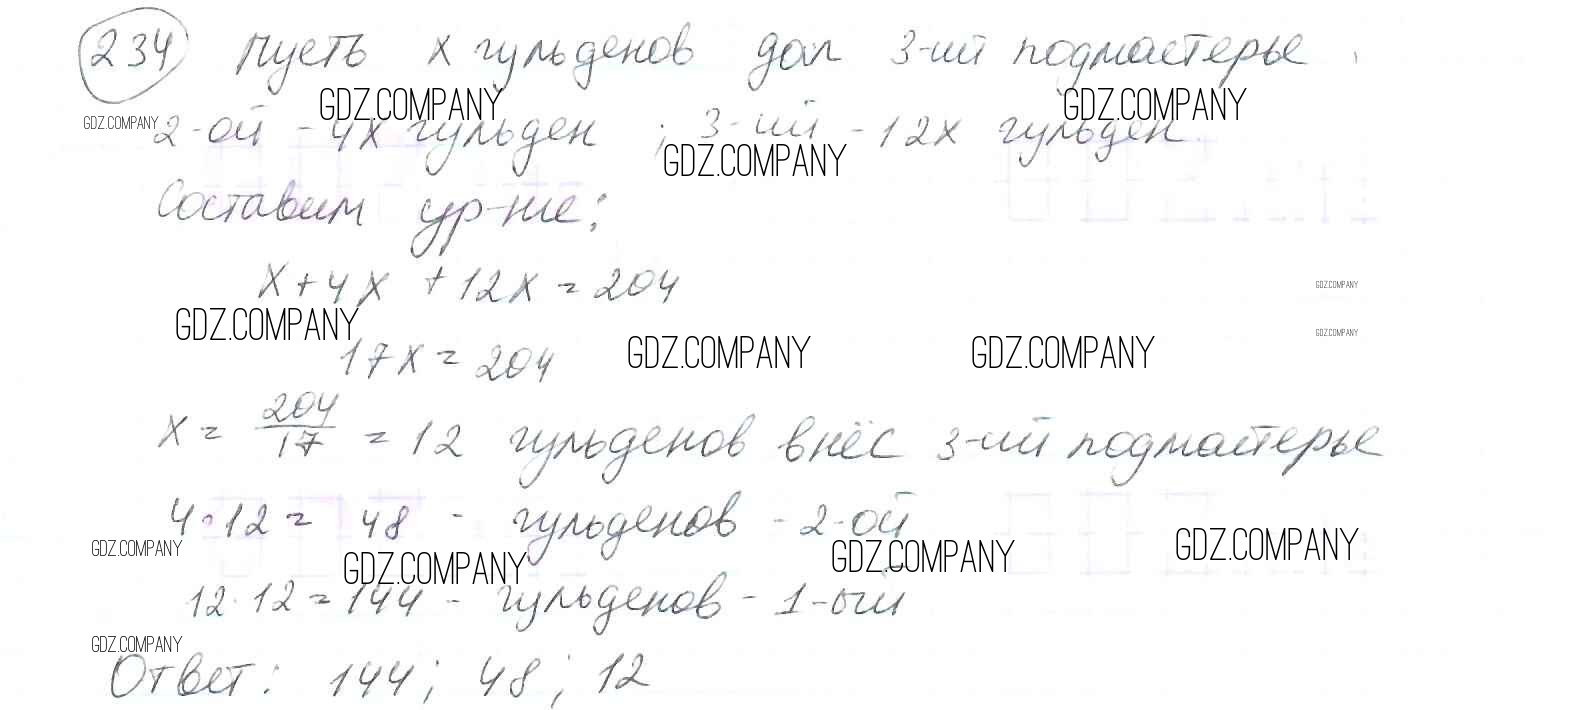 234 Пусть х гульденов дал 3-ий подмастерье
GDZ.COMPANY GDZ.COMPANY
GDZ.COMPANY 2-ой - 4х гульден ; 3-ий - 12х гульден
GDZ.COMPANY
Составим ур-ние:
х + 4х + 12х = 204
GDZ.COMPANY
GDZ.COMPANY GDZ.COMPANY
17х = 204 GDZ.COMPANY GDZ.COMPANY
GDZ.COMPANY
х = 204/17 = 12 гульденов внёс 3-ий подмастерье
4·12 = 48 - гульденов - 2-ой
GDZ.COMPANY GDZ.COMPANY GDZ.COMPANY GDZ.COMPANY
12·12 = 144 - гульденов - 1-ый
GDZ.COMPANY
Ответ: 144; 48; 12